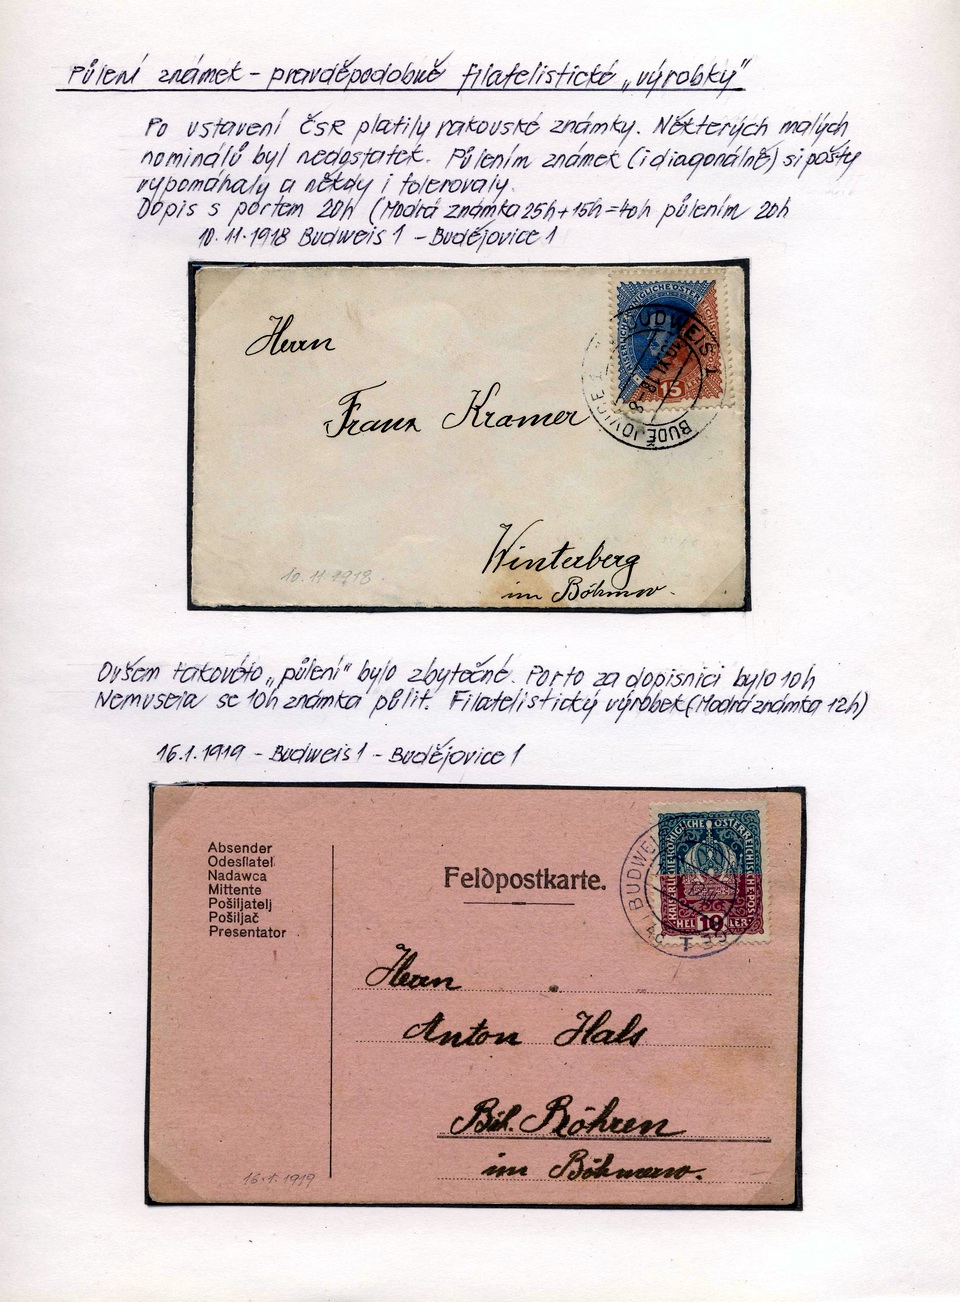 Půlení známek - pravděpodobně filatelistické „výrobky"
Po ustavení ČSR platily rakouské známky. Některých malých
nominálů byl nedostatek. Půlením známek (i diagonálně) si pošty
vypomáhaly a někdy i tolerovaly.
Dopis s portem 20h (Modrá známka 25h+15h=40h půlením 20h
10.11.1918 Budweis 1 - Budějovice 1
KAISERLICHE KÖNIGLICHE ÖSTER
15
BUDWEIS 1
10.XI.18-8
BUDĚJOVICE 1
Herrn
Franz Kramer
Winterberg
im Böhmerw.
10.11.1918
Ovšem takovéto „půlení" bylo zbytečné. Porto za dopisnici bylo 10h
Nemusela se 10h známka půlit. Filatelistický výrobek (Modrá známka 12h)
16.1.1919 - Budweis 1 - Budějovice 1
Absender
Odesílatel
Nadawca
Mittente
Pošiljatelj
Pošiljač
Presentator
Feldpostkarte.
KAISERLICHE KÖNIGLICHE ÖSTERREICHISCHE POST
HELLER
10
BUDWEI
Herrn
Anton Hals
Röhren
im Böhmerw.
16.1.1919